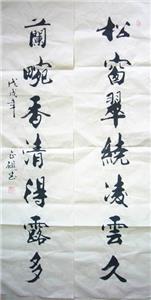 松窗翠繞凌雲久
蘭畹香清得露多
戊戌年